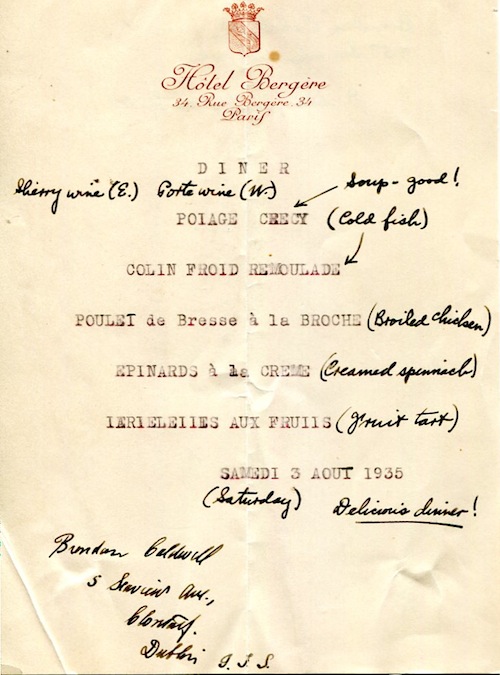 Hôtel Bergère
34. Rue Bergère. 34
Paris
DINER
Sherry wine (E.) Porte wine (W.) Soup - good!
POIAGE CRECY (Cold fish)
COLIN FROID REMOULADE
POULET de Bresse à la BROCHE (Broiled chicken)
EPINARDS à la CREME (Creamed spinnach)
IERIELEIIES AUX FRUIIS (Fruit tart)
SAMEDI 3 AOUT 1935
(Saturday) Delicious dinner!
Brendan Caldwell
5 Ave.,
Clontarf.
Dublin I.F.S.